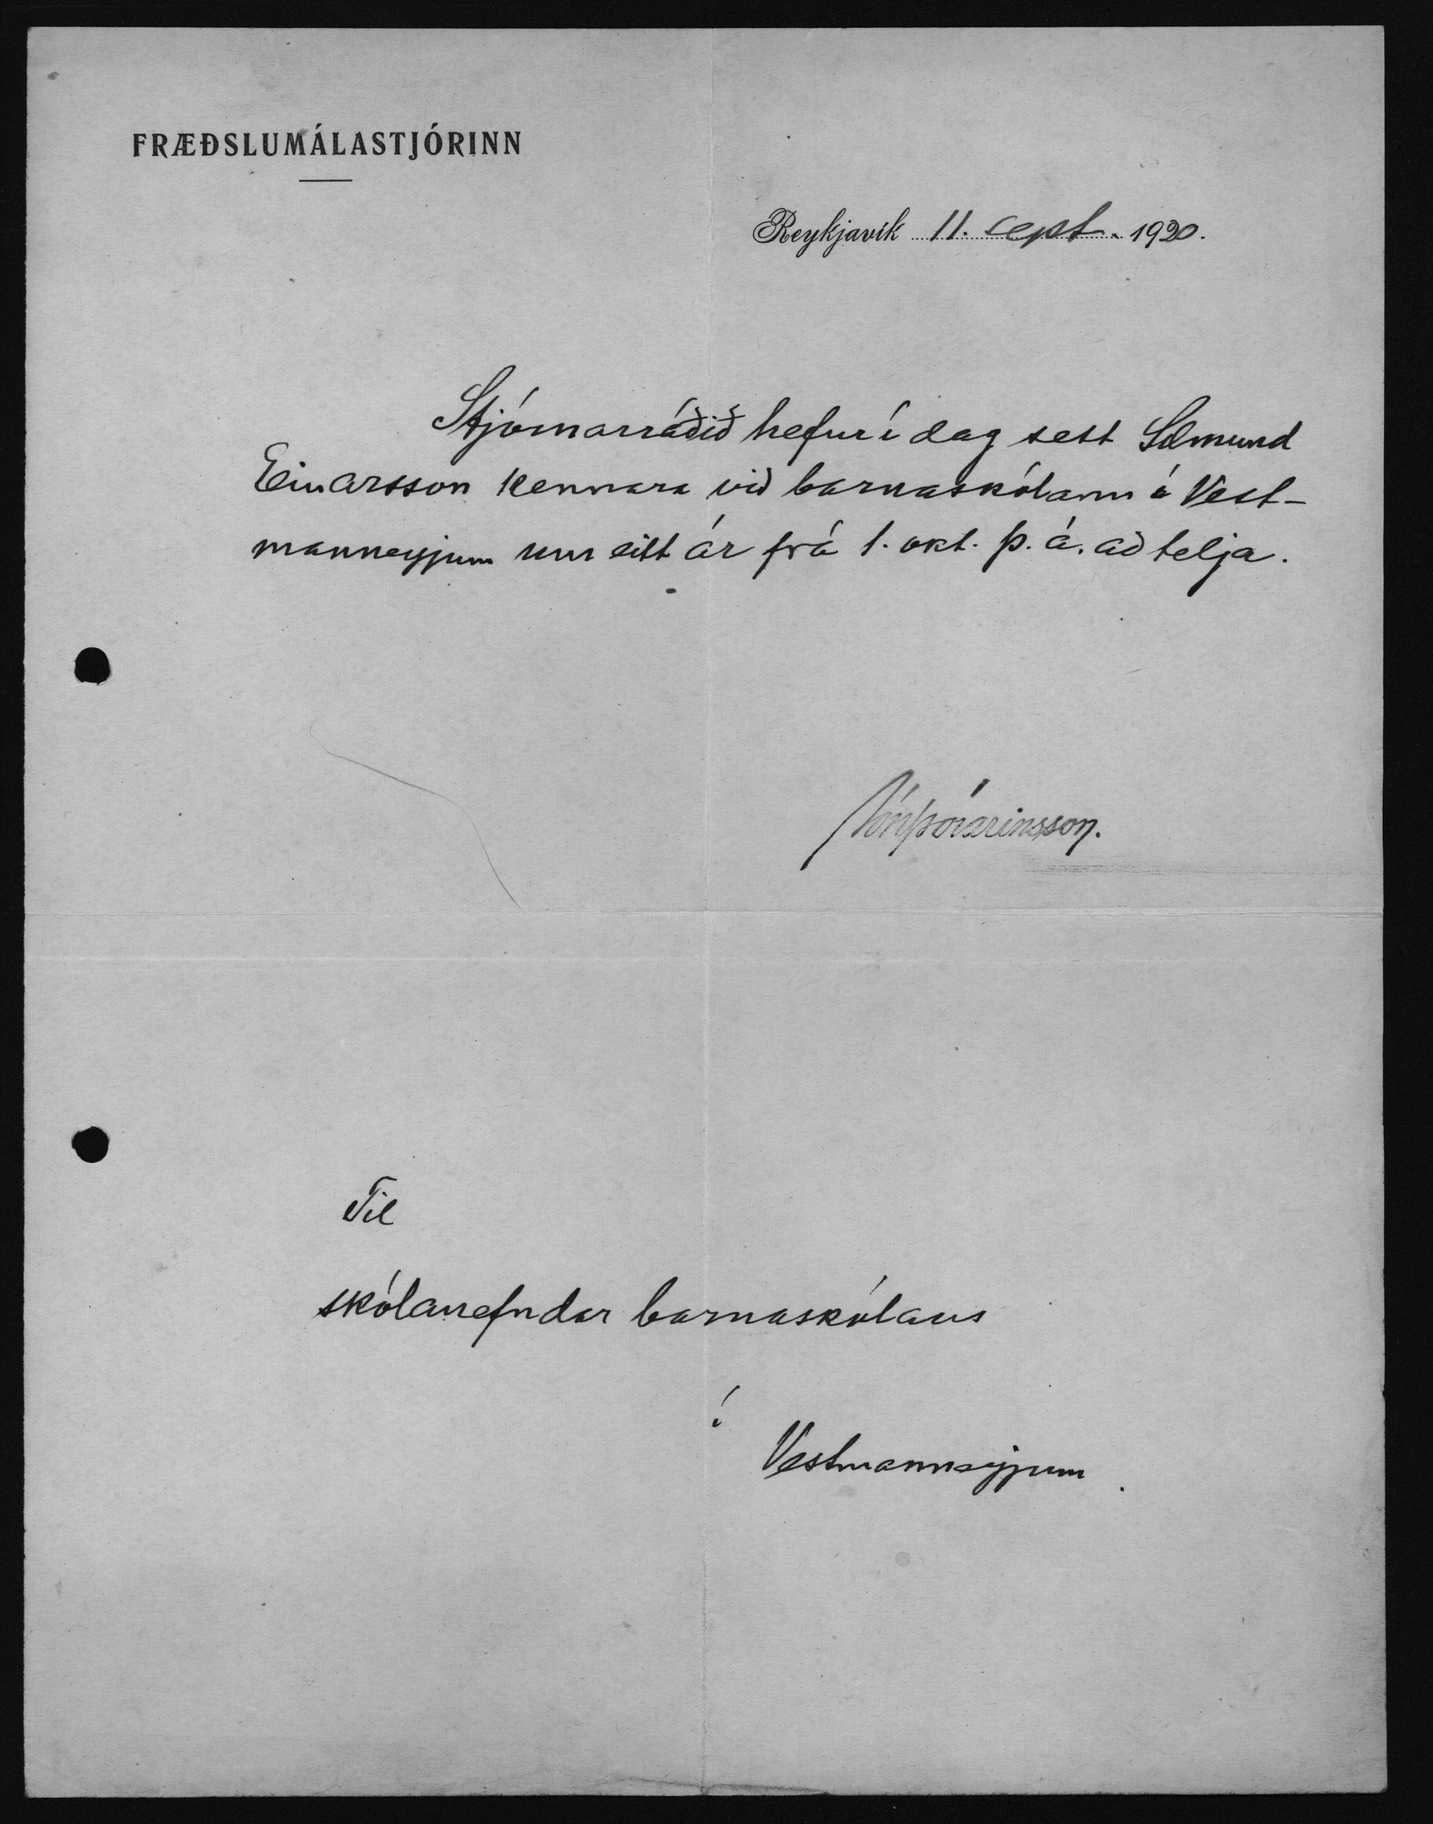 FRÆÐSLUMÁLASTJÓRINN
Reykjavík 11. sept. 1920.
Stjórnarráðið hefur í dag sett Sölmund
Einarsson kennara við barnaskólann í Vest-
mannaeyjum um eitt ár frá 1. okt. þ. á. að telja.
Jón Þórarinsson.
Til
skólanefndar barnaskólans
í
Vestmannaeyjum.